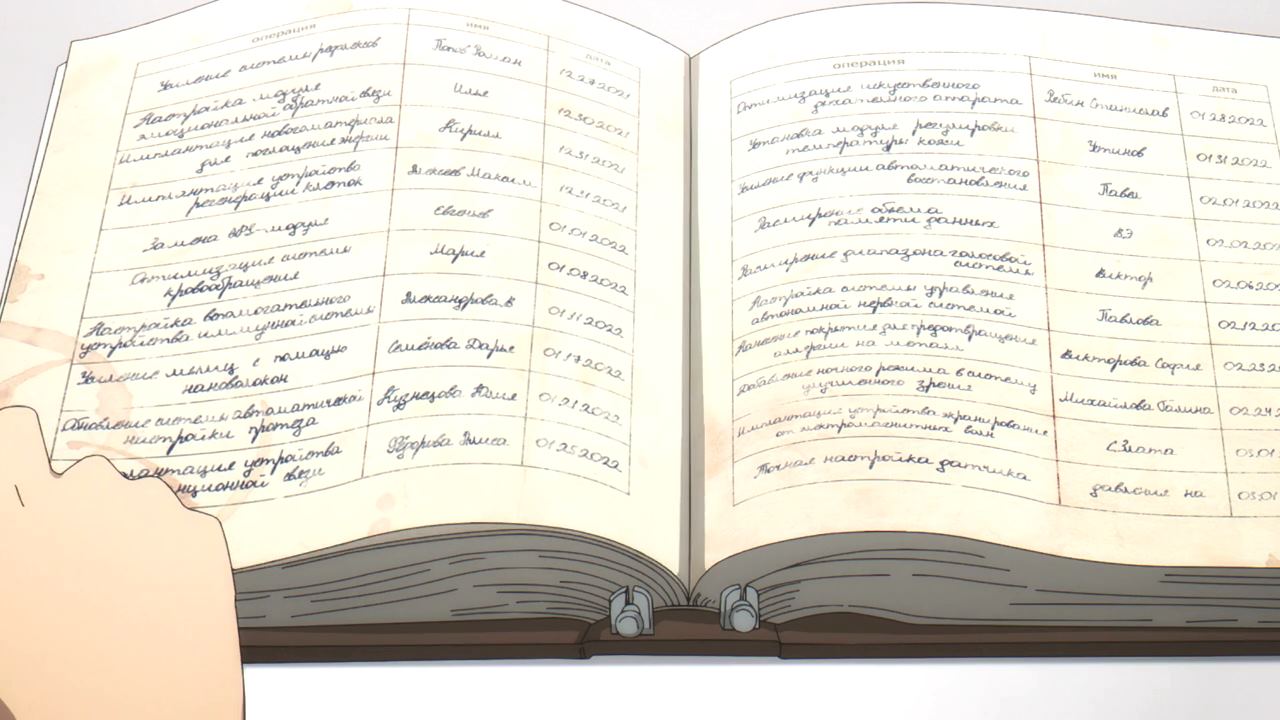 операция имя дата
Усиление системы рефлексов Попов Роман 12.27.2021
Настройка модуля
эмоциональной обратной связи Илья 12.30.2021
Имплантация нового материала
для поглощения энергии Кирилл 12.31.2021
Имплантация устройства
регенерации клеток Алексеев Максим 12.31.2021
Замена модуля Евгеньев 01.01.2022
Оптимизация системы
кровообращения Мария 01.08.2022
Настройка вспомогательного
устройства иммунной системы Александрова.В 01.11.2022
Усиление мышц с помощью
нановолокон Семёнова Дарья 01.17.2022
Обновление системы автоматической
настройки протеза Кузнецова Юлия 01.21.2022
устройства
связи Фёдорова Алиса 01.25.2022
операция имя дата
Оптимизация искусственного
дыхательного аппарата Рябин Станислав 01.28.2022
Установка модуля регулировки
температуры кожи Устинов 01.31.2022
Усиление функции автоматического
восстановления Павел 02.01.2022
Расширение объема
памяти данных ВЭ 02.02.20
Расширение диапазона голосовой
системы Виктор 02.06.20
Настройка системы управления
автономной нервной системой Павлова 02.12.20
Нанесение покрытия для предотвращения
аллергии на металл Викторова София 02.23.2
Добавление ночного режима в систему
улучшенного зрения Михайлова Галина 02.24.2
Имплантация устройства экранирования
от электромагнитных волн С.Злата 03.01
Точная настройка датчика давления на 03.01